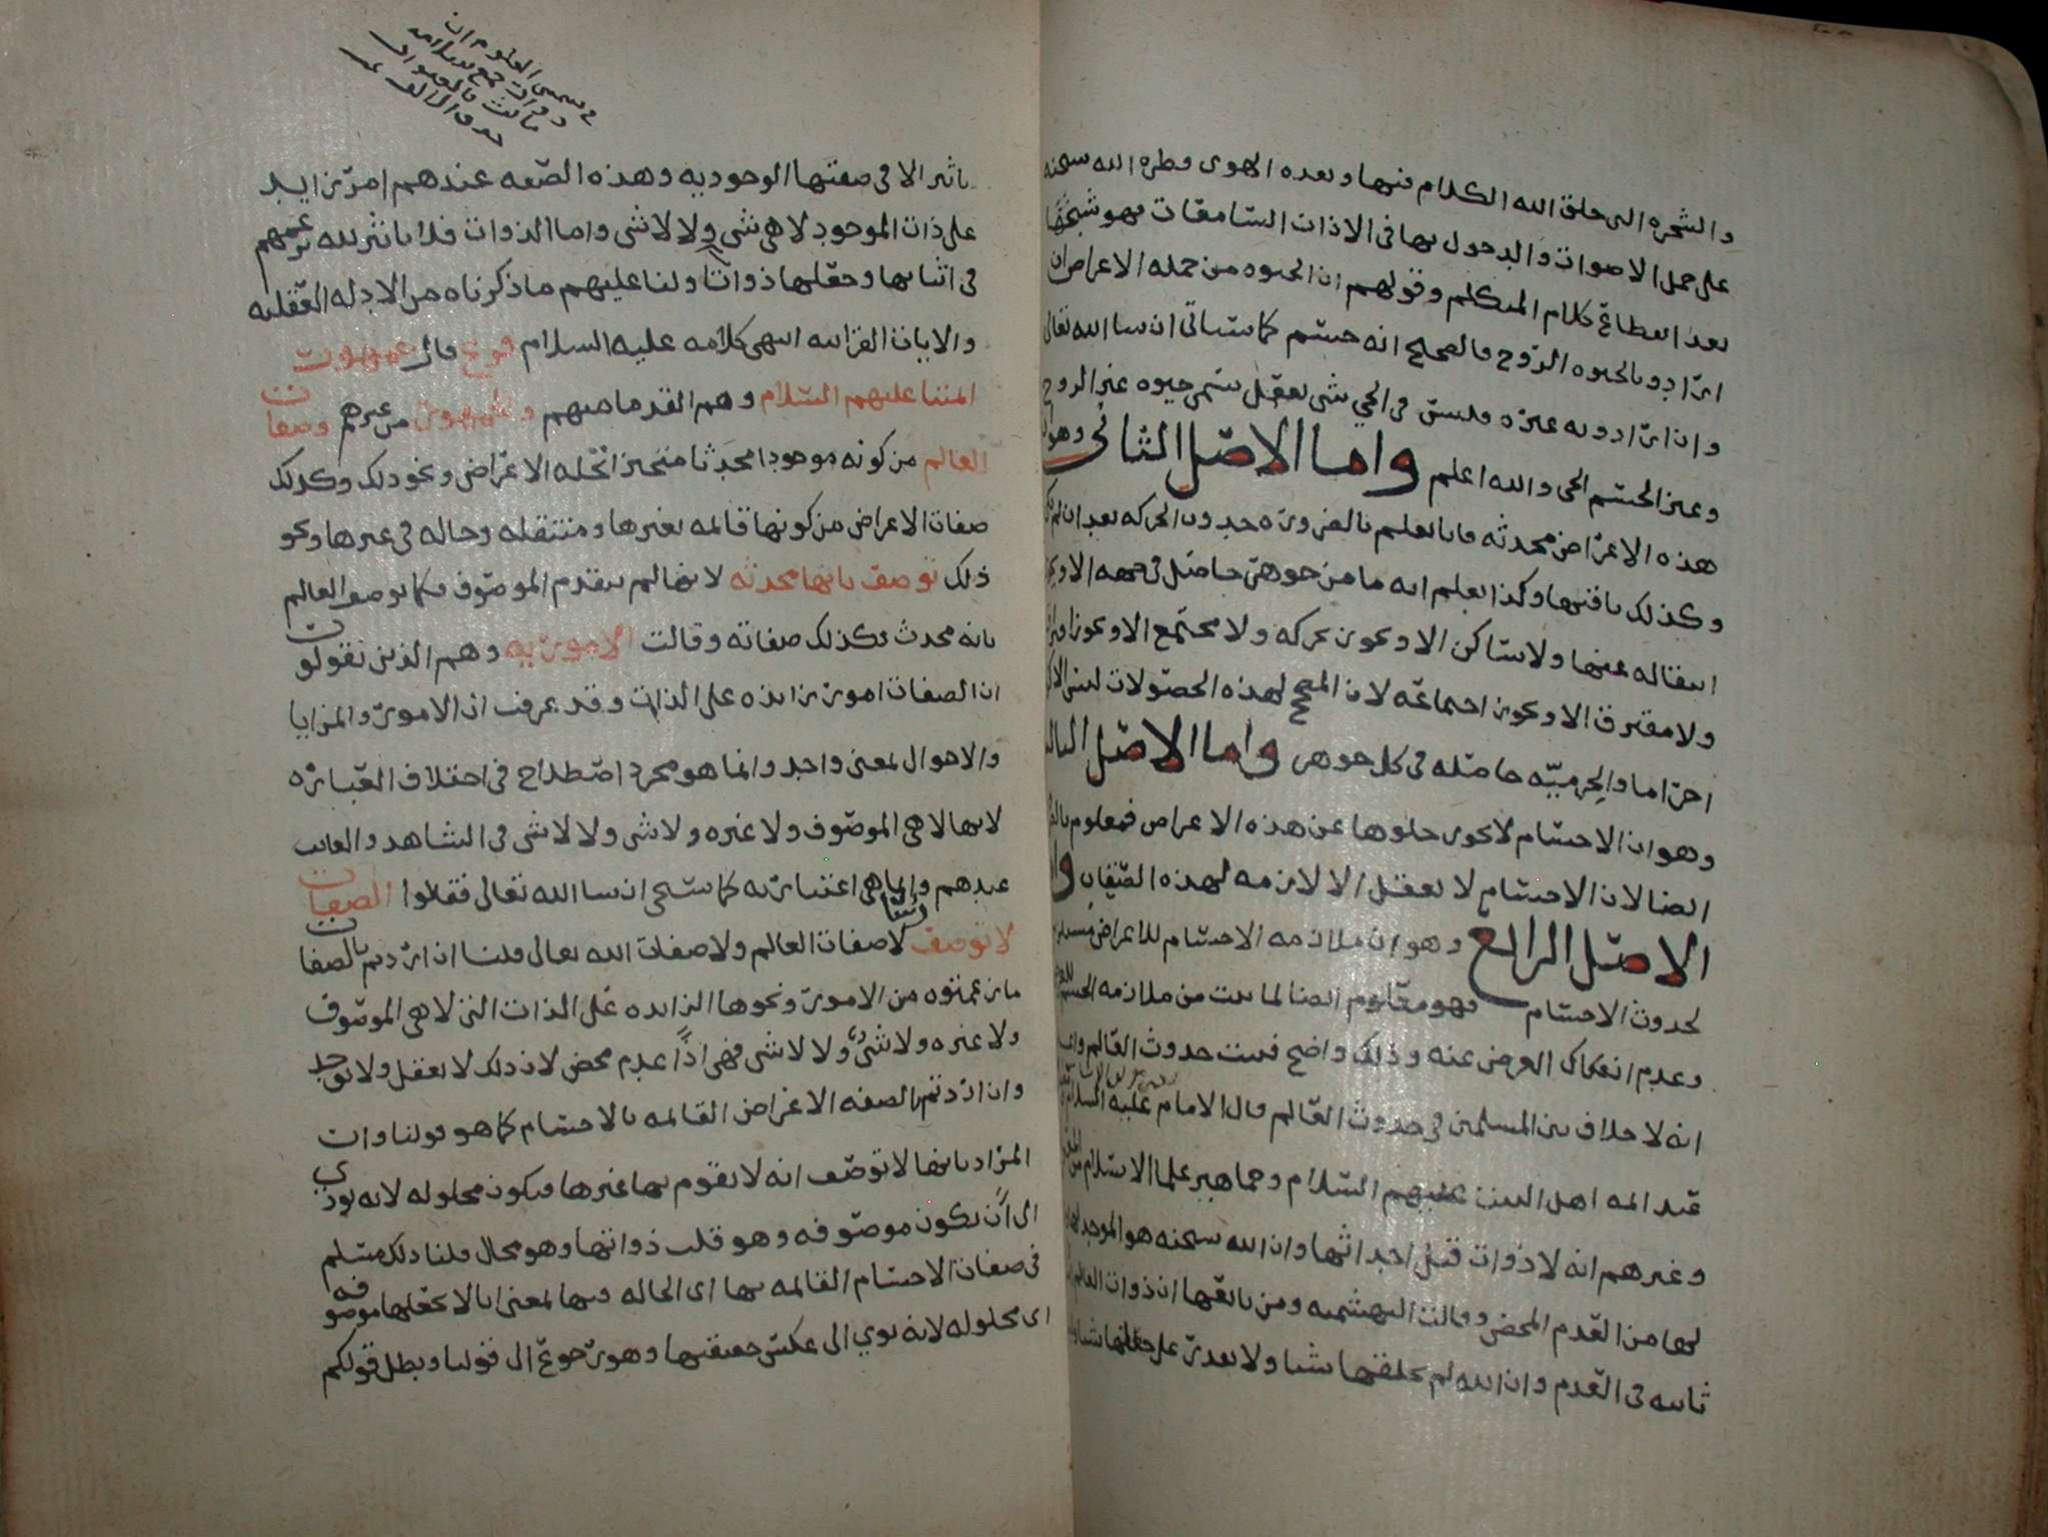 والشجره التى خلق الله الكلام فيها وبعده الهوى وطره الله سبحنه
على حمل الاصوات والدخول بها فى الاذان السامعات فهو شبحها
بعد انقطاع كلام المتكلم وقولهم ان الحيوه من جمله الاعراض ان
ارادوا بالحيوه الروح فالصحيح انه جسم كما سياتى ان شا الله تعالى
وان ارادوا به غيره فليس فى الحي شى يعقل يسمى حيوه غير الروح
وغير الجسم الحى والله اعلم واما الاصل الثانى وهو ان
هذه الاعراض محدثه فانا نعلم بالضروره حدوث الحركه بعد ان لم تكن
وكذلك باقيها وكذا نعلم انه ما من جوهر حاصل فى جهه الا ويجوز
انتقاله عنها ولا ساكن الا ويجوز تحركه ولا مجتمع الا ويجوز افتراقه
ولا مفترق الا ويجوز اجتماعه لان المصحح لهذه الحصولات ليس الا
اجراما والجرميه حاصله فى كل جوهر واما الاصل الثالث
وهو ان الاجسام لا يجوز خلوها عن هذه الاعراض فمعلوم
ايضا لان الاجسام لا تعقل الا لازمه لهذه الصفات واما
الاصل الرابع وهو ان ملازمه الاجسام للاعراض مستلزم
لحدوث الاجسام فهو معلوم ايضا لما ثبت من ملازمه الجسم للعرض
وعدم انفكاك العرض عنه وذلك واضح فثبت حدوث العالم واعلم
انه لا خلاف بين المسلمين فى حدوث العالم قال الامام عليه السلام
عند ائمه اهل البيت عليهم السلام وجماهير علما الاسلام من
وغيرهم انه لا ذوات قبل احداثها وان الله سبحنه هو الموجد لها
لها من العدم المحض وقالت البهشميه ومن تابعها ان ذوات العالم
ثابته فى العدم وان الله لم يخلقها شيا ولا يقدر على جعلها شيا
تاثير الا فى صفتها الوجوديه وهذه الصفه عندهم امر زايد
على ذات الموجود لا هى شى ولا لا شى واما الذوات فلا تاثير لله بزعمهم
فى اثباتها وجعلها ذواتا ولنا عليهم ما ذكرناه من الادله العقليه
والايات القرانيه انتهى كلامه عليه السلام فرع قال جمهور
ائمتنا عليهم السلام وهم القدما منهم وجمهور من غيرهم وصفات
العالم من كونه موجودا محدثا متحيزا تحله الاعراض ونحو ذلك وكذلك
صفات الاعراض من كونها قائمه بغيرها ومنتقله وحاله فى غيرها ونحو
ذلك توصف بانها محدثه لانها لم تتقدم الموصوف فكما يوصف العالم
بانه محدث فكذلك صفاته وقالت الاموريه وهم الذين يقولون
ان الصفات امور زايده على الذات وقد عرفت ان الامور والمزايا
والاحوال لمعنى واحد وانما هو مجرد اصطلاح فى اختلاف العباره
لانها لا هى الموصوف ولا غيره ولا شى ولا لا شى فى الشاهد والغايب
عندهم وانما هى اعتباريه كما سيجى ان شا الله تعالى فقالوا الصفات
لا توصف لا صفات العالم ولا صفات الله تعالى قلنا ان اردتم بالصفات
ما زعمتوه من الامور ونحوها الزايده على الذات التى لا هى الموصوف
ولا غيره ولا شى ولا لا شى فهى اذا عدم محض لان ذلك لا يعقل ولا يوجد
وان اردتم بالصفه الاعراض القائمه بالاجسام كما هو قولنا وان
المراد بانها لا توصف انه لا يقوم بها غيرها فيكون محلوله لانه يودى
الى ان تكون موصوفه وهو قلب ذواتها وهو محال قلنا ذلك مسلم
فى صفات الاجسام القائمه بها اى الحاله فيها لمعنى انا لا نجعلها موصوفه
اى محلوله لانه يودي الى عكس حقيقتها وهو رجوع الى قولنا وبطل قولكم